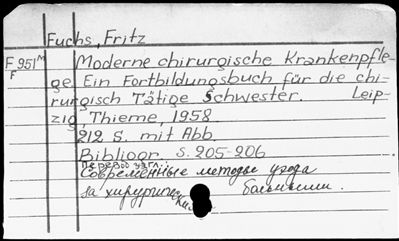 Fuchs, Fritz
F 951м Moderne chirurgische Krankenpfle-
F
ge. Ein Fortbildungsbuch für die chi-
rurgisch Tätige Schwester. Leip-
zig, Thieme, 1958
212 S. mit Abb.
Bibliogr. S. 205-206
Перевод загл.:
Современные методы ухода
за хирургич. больными.